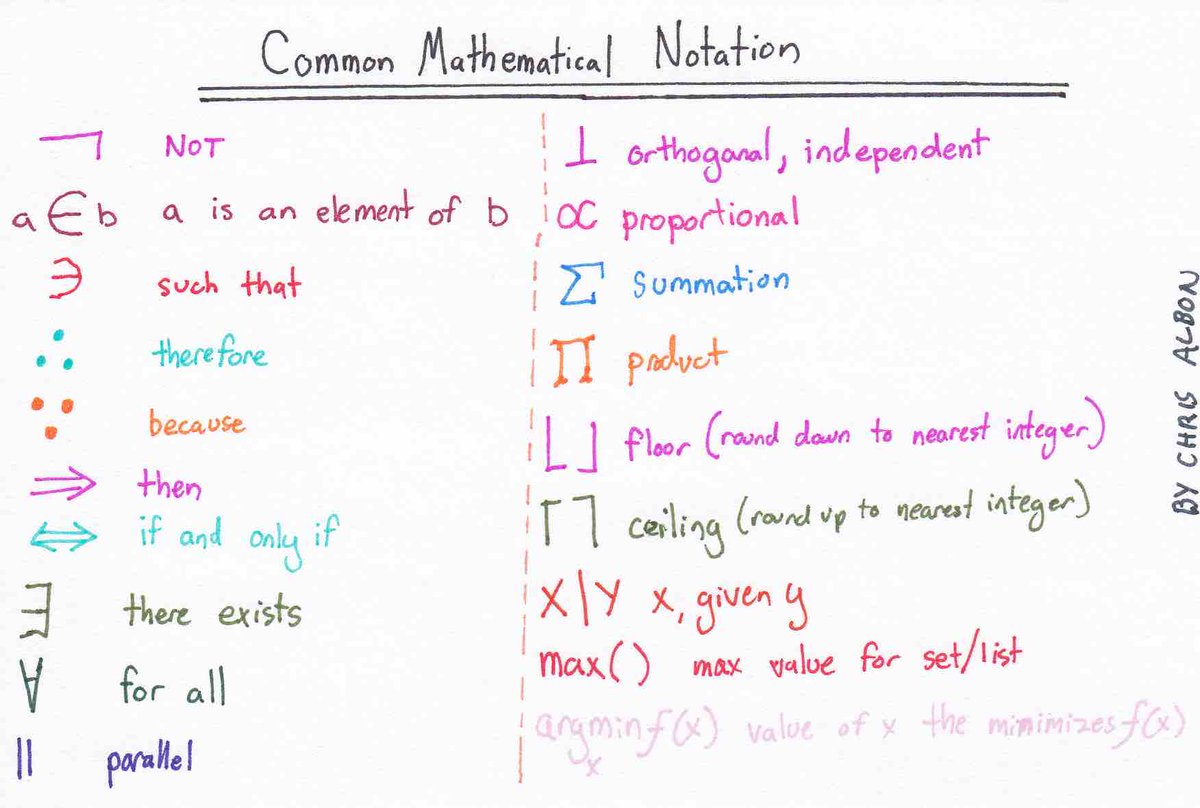 Common Mathematical Notation
¬ NOT
a ∈ b a is an element of b
∋ such that
∴ therefore
∵ because
⇒ then
⇔ if and only if
∃ there exists
∀ for all
|| parallel
⊥ orthoganal, independent
∝ proportional
Σ Summation
Π product
⌊ ⌋ floor (round down to nearest integer)
⌈ ⌉ ceiling (round up to nearest integer)
X|Y x, given y
max() max value for set/list
argmin f(x) value of x the minimizes f(x)
x
BY CHRIS ALBON